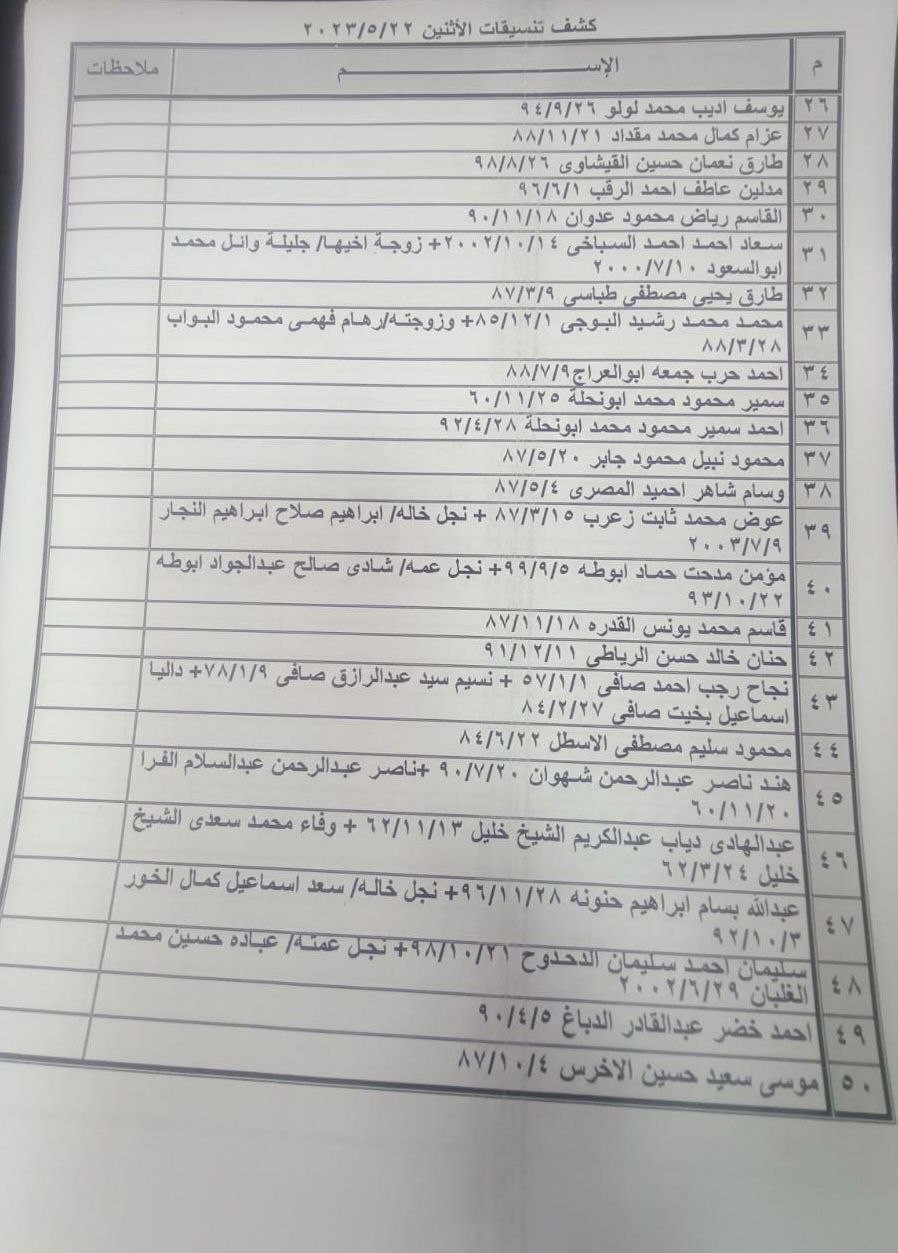 كشف تنسيقات الأثنين ٢٠٢٣/٥/٢٢
م الإســـــــــــم ملاحظات
٢٦ يوسف اديب محمد لولو ٩٤/٩/٢٦
٢٧ عزام كمال محمد مقداد ٨٨/١١/٢١
٢٨ طارق نعمان حسين القيشاوى ٩٨/٨/٢٦
٢٩ مدلين عاطف احمد الرقب ٩٦/٦/١
٣٠ القاسم رياض محمود عدوان ٩٠/١١/١٨
٣١ سعاد احمد احمد السباخى ٢٠٠٢/١٠/١٤+ زوجة اخيها/ جليلة وائل محمد
ابوالسعود ٢٠٠٠/٧/١٠
٣٢ طارق يحيى مصطفى طباسى ٨٧/٣/٩
٣٣ محمد محمد رشيد البوجى ٨٥/١٢/١+ وزوجته/رهام فهمى محمود البواب
٨٨/٣/٢٨
٣٤ احمد حرب جمعه ابوالعراج٨٨/٧/٩
٣٥ سمير محمود محمد ابونحلة ٦٠/١١/٢٥
٣٦ احمد سمير محمود محمد ابونحلة ٩٢/٤/٢٨
٣٧ محمود نبيل محمود جابر ٨٧/٥/٢٠
٣٨ وسام شاهر احميد المصرى ٨٧/٥/٤
٣٩ عوض محمد ثابت زعرب ٨٧/٣/١٥ + نجل خاله/ ابراهيم صلاح ابراهيم النجار
٢٠٠٣/٧/٩
٤٠ مؤمن مدحت حماد ابوطه ٩٩/٩/٥+ نجل عمه/ شادى صالح عبدالجواد ابوطه
٩٣/١٠/٢٢
٤١ قاسم محمد يونس القدره ٨٧/١١/١٨
٤٢ حنان خالد حسن الرياطى ٩١/١٢/١١
٤٣ نجاح رجب احمد صافى ٥٧/١/١ + نسيم سيد عبدالرازق صافى ٧٨/١/٩+ داليا
اسماعيل بخيت صافى ٨٤/٢/٢٧
٤٤ محمود سليم مصطفى الاسطل ٨٤/٦/٢٢
٤٥ هند ناصر عبدالرحمن شهوان ٩٠/٧/٢٠ +ناصر عبدالرحمن عبدالسلام الفرا
٦٠/١١/٢٠
٤٦ عبدالهادى دياب عبدالكريم الشيخ خليل ٦٢/١١/١٣ + وفاء محمد سعدى الشيخ
خليل ٦٢/٣/٢٤
٤٧ عبدالله بسام ابراهيم حنونه ٩٦/١١/٢٨+ نجل خاله/ سعد اسماعيل كمال الخور
٩٢/١٠/٣
٤٨ سليمان احمد سليمان الدحدوح ٩٨/١٠/٢١+ نجل عمته/ عباده حسين محمد
الغلبان ٢٠٠٢/٦/٢٩
٤٩ احمد خضر عبدالقادر الدباغ ٩٠/٤/٥
٥٠ موسى سعيد حسين الاخرس ٨٧/١٠/٤